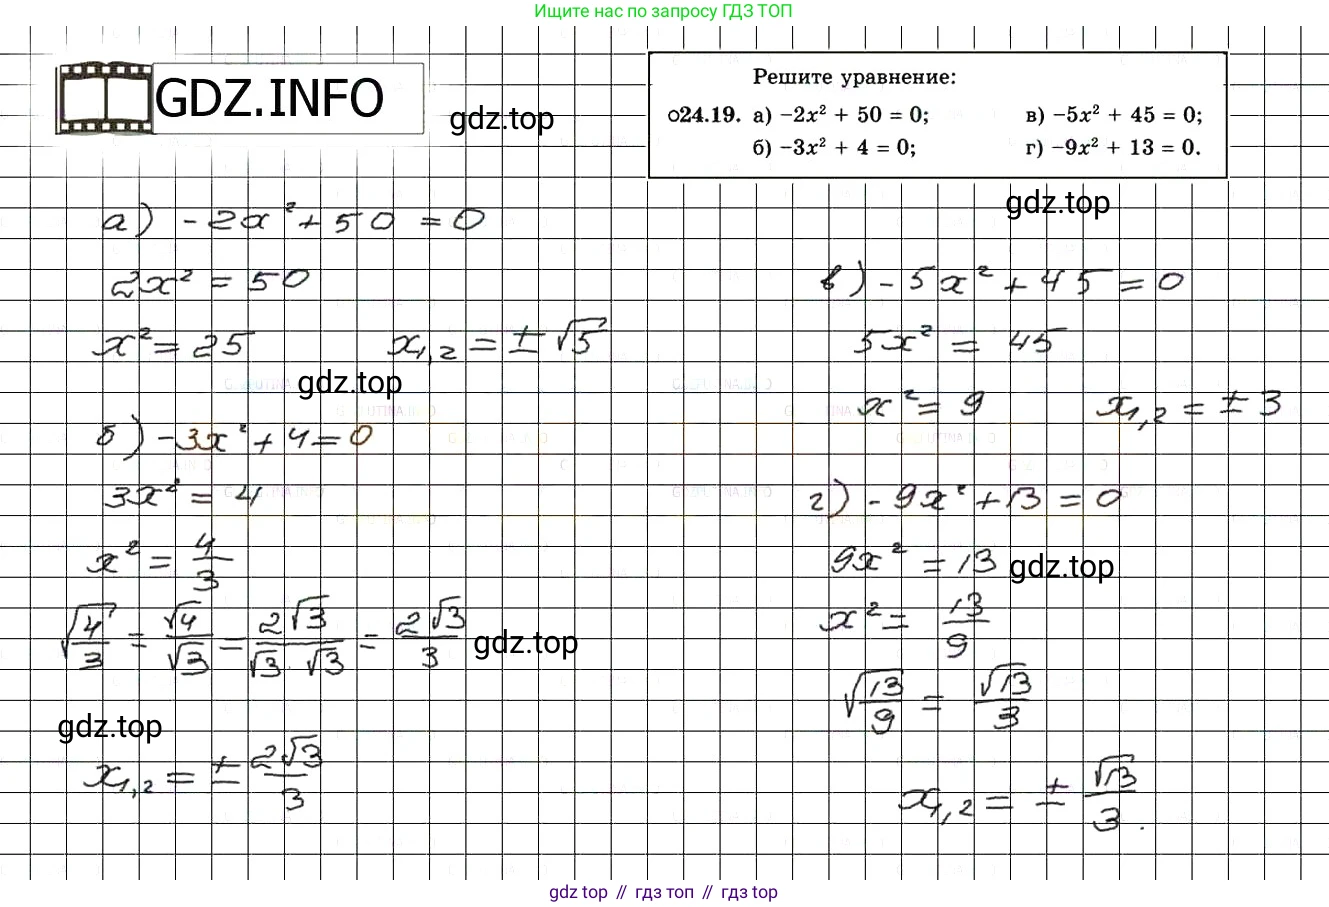 Ищите нас по запросу ГДЗ ТОП
GDZ.INFO
gdz.top
Решите уравнение:
24.19. а) −2x² + 50 = 0; в) −5x² + 45 = 0;
б) −3x² + 4 = 0; г) −9x² + 13 = 0.
gdz.top
а) -2x² + 50 = 0
2x² = 50
x² = 25 x₁,₂ = ± √5
gdz.top
б) -3x² + 4 = 0
3x² = 4
x² = 4/3
√(4/3) = √4/√3 = 2√3/(√3 · √3) = 2√3/3
gdz.top
gdz.top
x₁,₂ = ± 2√3/3
в) -5x² + 45 = 0
5x² = 45
x² = 9 x₁,₂ = ± 3
г) -9x² + 13 = 0
9x² = 13
gdz.top
x² = 13/9
√(13/9) = √13/3
x₁,₂ = ± √13/3.
gdz top // гдз топ // гдз top